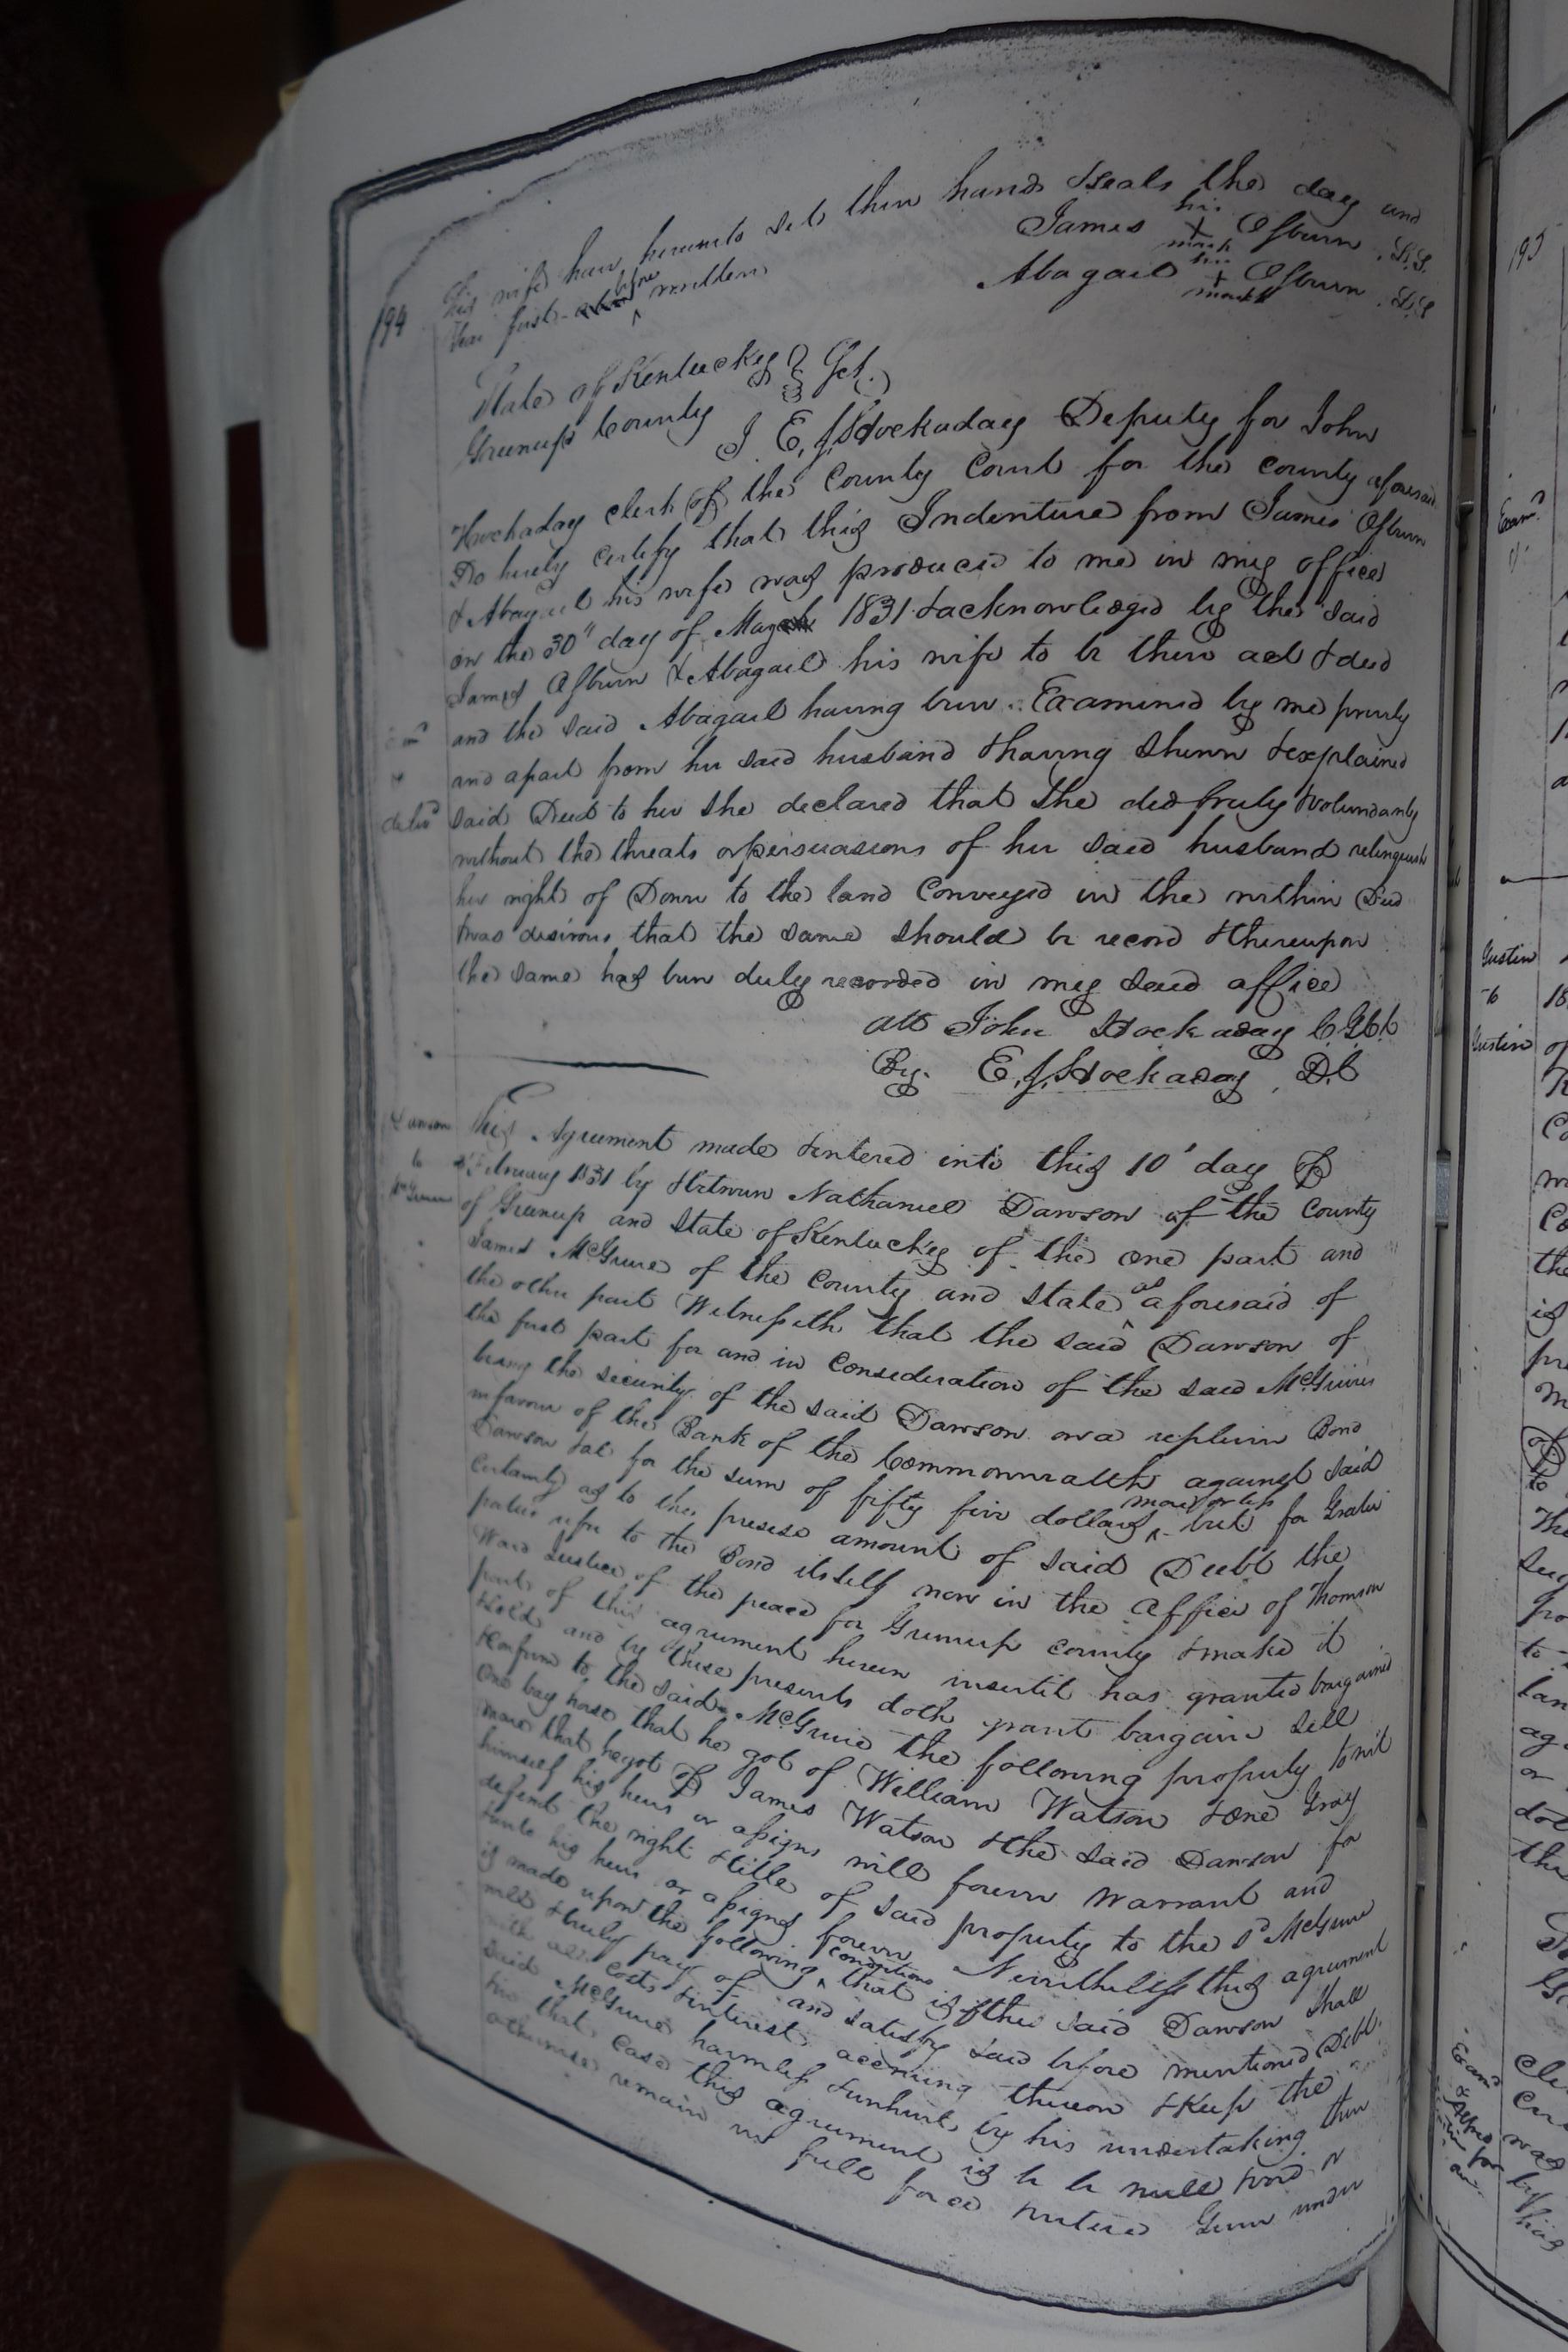 194
his wife have hereunto set their hands & seals the day and
Year first before written
James his X mark Osburn L.S.
Abagail his + mark Osburn L.S
State of Kentucky } Sct.
Greenup County
I E. J. Hockaday Deputy for John
Hockaday clerk of the County Court for the county aforesaid
Do hereby certify that this Indenture from James Osburn
& Abagail his wife was produced to me in my office
on the 30" day of May 1831 & acknowledged by the said
James Osburn & Abagail his wife to be their act & deed
and the said Abagail having been Examined by me privily
and apart from her said husband & having shewn & explained
said Deed to her she declared that she did freely & volundarily
without the threats or persuasions of her said husband relinquish
her right of Dower to the land Conveyed in the within Deed
& was desirous that the same should be record & thereupon
the same has been duly recorded in my said office
Att John Hockaday C.G.C.C
By E. J. Hockaday D.C
Exm.d
&
deliv.d
Dawson
to
McGuire
This Agreement made & entered into this 10' day of
February 1831 by & between Nathaniel Dawson of the County
of Greenup and State of Kentucky of the one part and
James McGuire of the County and State as aforesaid of
the other part Witnesseth that the said Dawson of
the first part for and in Consideration of the said McGuires
being the security of the said Dawson on a replevin Bond
in favour of the Bank of the Commonwealth against said
Dawson &al for the sum of fifty five dollars more or less but for Grater
Certainty as to the presise amount of said Deebt the
parties refer to the Bond itself now in the office of Thomson
Ward Justice of the peace for Greenup county & make it
part of this agreement herein insertit has granted bargained
& sold and by these presents doth grant bargain sell
& confirm to the said McGuire the following property towit
One bay horse that he got of William Watson & One Gray
mare that he got of James Watson & the said Dawson for
himself his heirs or assigns will forever Warrant and
defend the right & title of said property to the sd McGuire
& unto his heirs or assigns forever Nevertheless this agreement
is made upon the following conditions that is if the said Dawson shall
well & truly pay of and satisfy said before mentioned Debt
with all costs & interest accruing thereon & keep the
said McGuire harmless & unhurt by his undertaking then
in that case this agreement is to be null & void or
otherwise remain in full force & virtue Given under
195
Exam.d
Justin
to
Justin